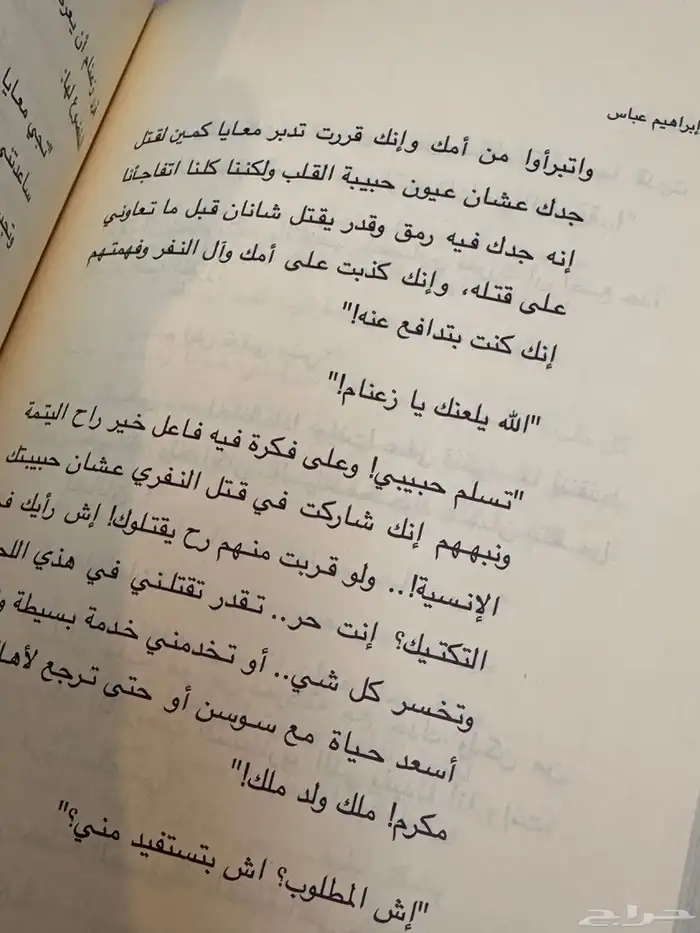 إبراهيم عباس
واتبرأوا من أمك وإنك قررت تدبر معايا كمين لقتل
جدك عشان عيون حبيبة القلب ولكننا كلنا اتفاجأنا
إنه جدك فيه رمق وقدر يقتل شانان قبل ما تعاوني
على قتله، وإنك كذبت على أمك وآل النفر وفهمتهم
إنك كنت بتدافع عنه!"
"الله يلعنك يا زعنام!"
"تسلم حبيبي! وعلى فكرة فيه فاعل خير راح اليتمة
ونبههم إنك شاركت في قتل النفري عشان حبيبتك
الإنسية!.. ولو قربت منهم رح يقتلوك! إش رأيك
التكتيك؟ إنت حر.. تقدر تقتلني في هذي
وتخسر كل شي.. أو تخدمني خدمة بسيطة
أسعد حياة مع سوسن أو حتى ترجع
مكرم! ملك ولد ملك!"
"إش المطلوب؟ اش بتستفيد مني؟"
تحي معايا
حراج